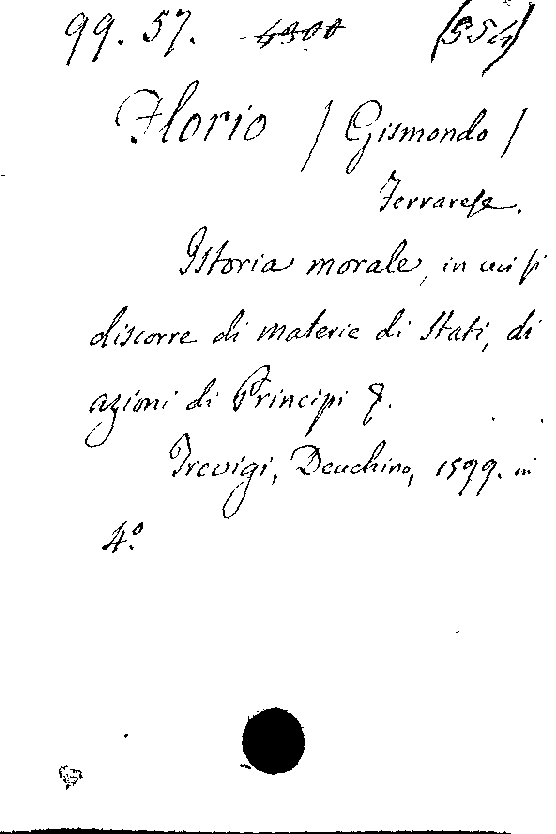 99. 57. 4300 (554)
Florio / Gismondo /
Ferrarese.
Istoria morale, in cui si
discorre di materie di Stati, di
azioni di Principi &.
Trevigi, Deuchino, 1599. in
4.º